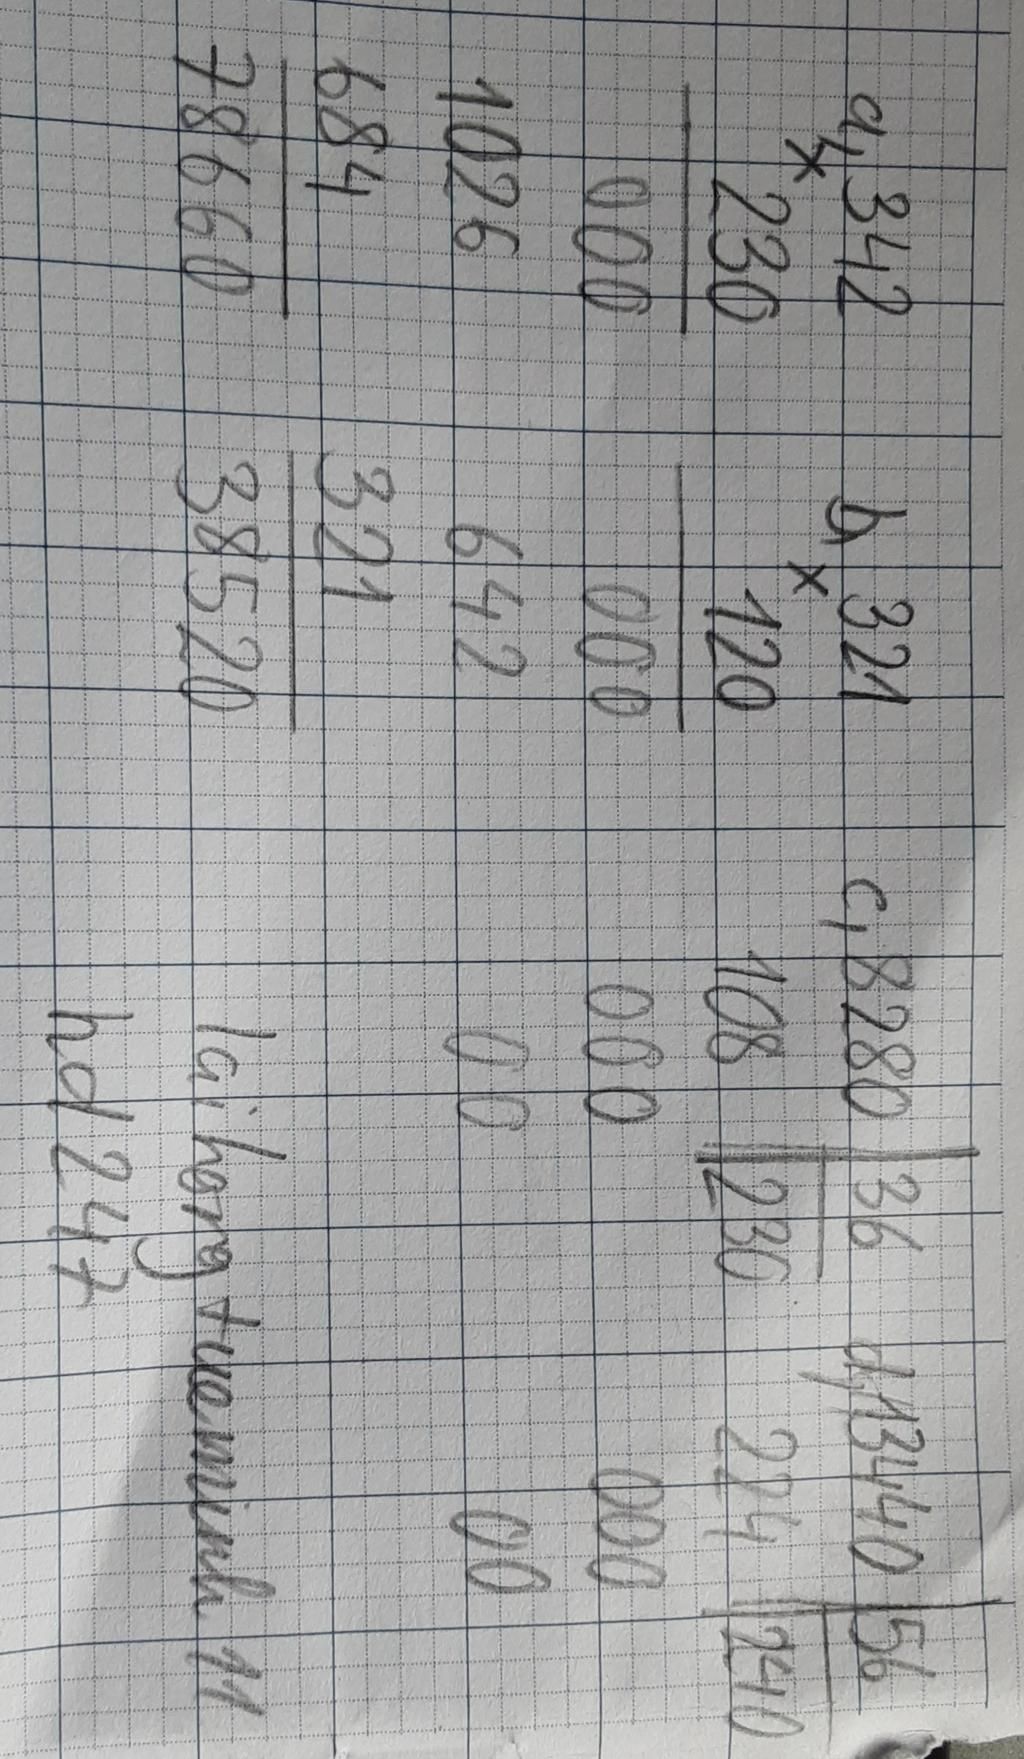 a, 342 b, 321 c, 8280 | 36 d, 13440 | 56
x 230 x 120 108 | 230 224 | 240
000 000 000 000
1026 642 00 00
684 321
78660 38520 lại hoàng tue minh 11
hd 247